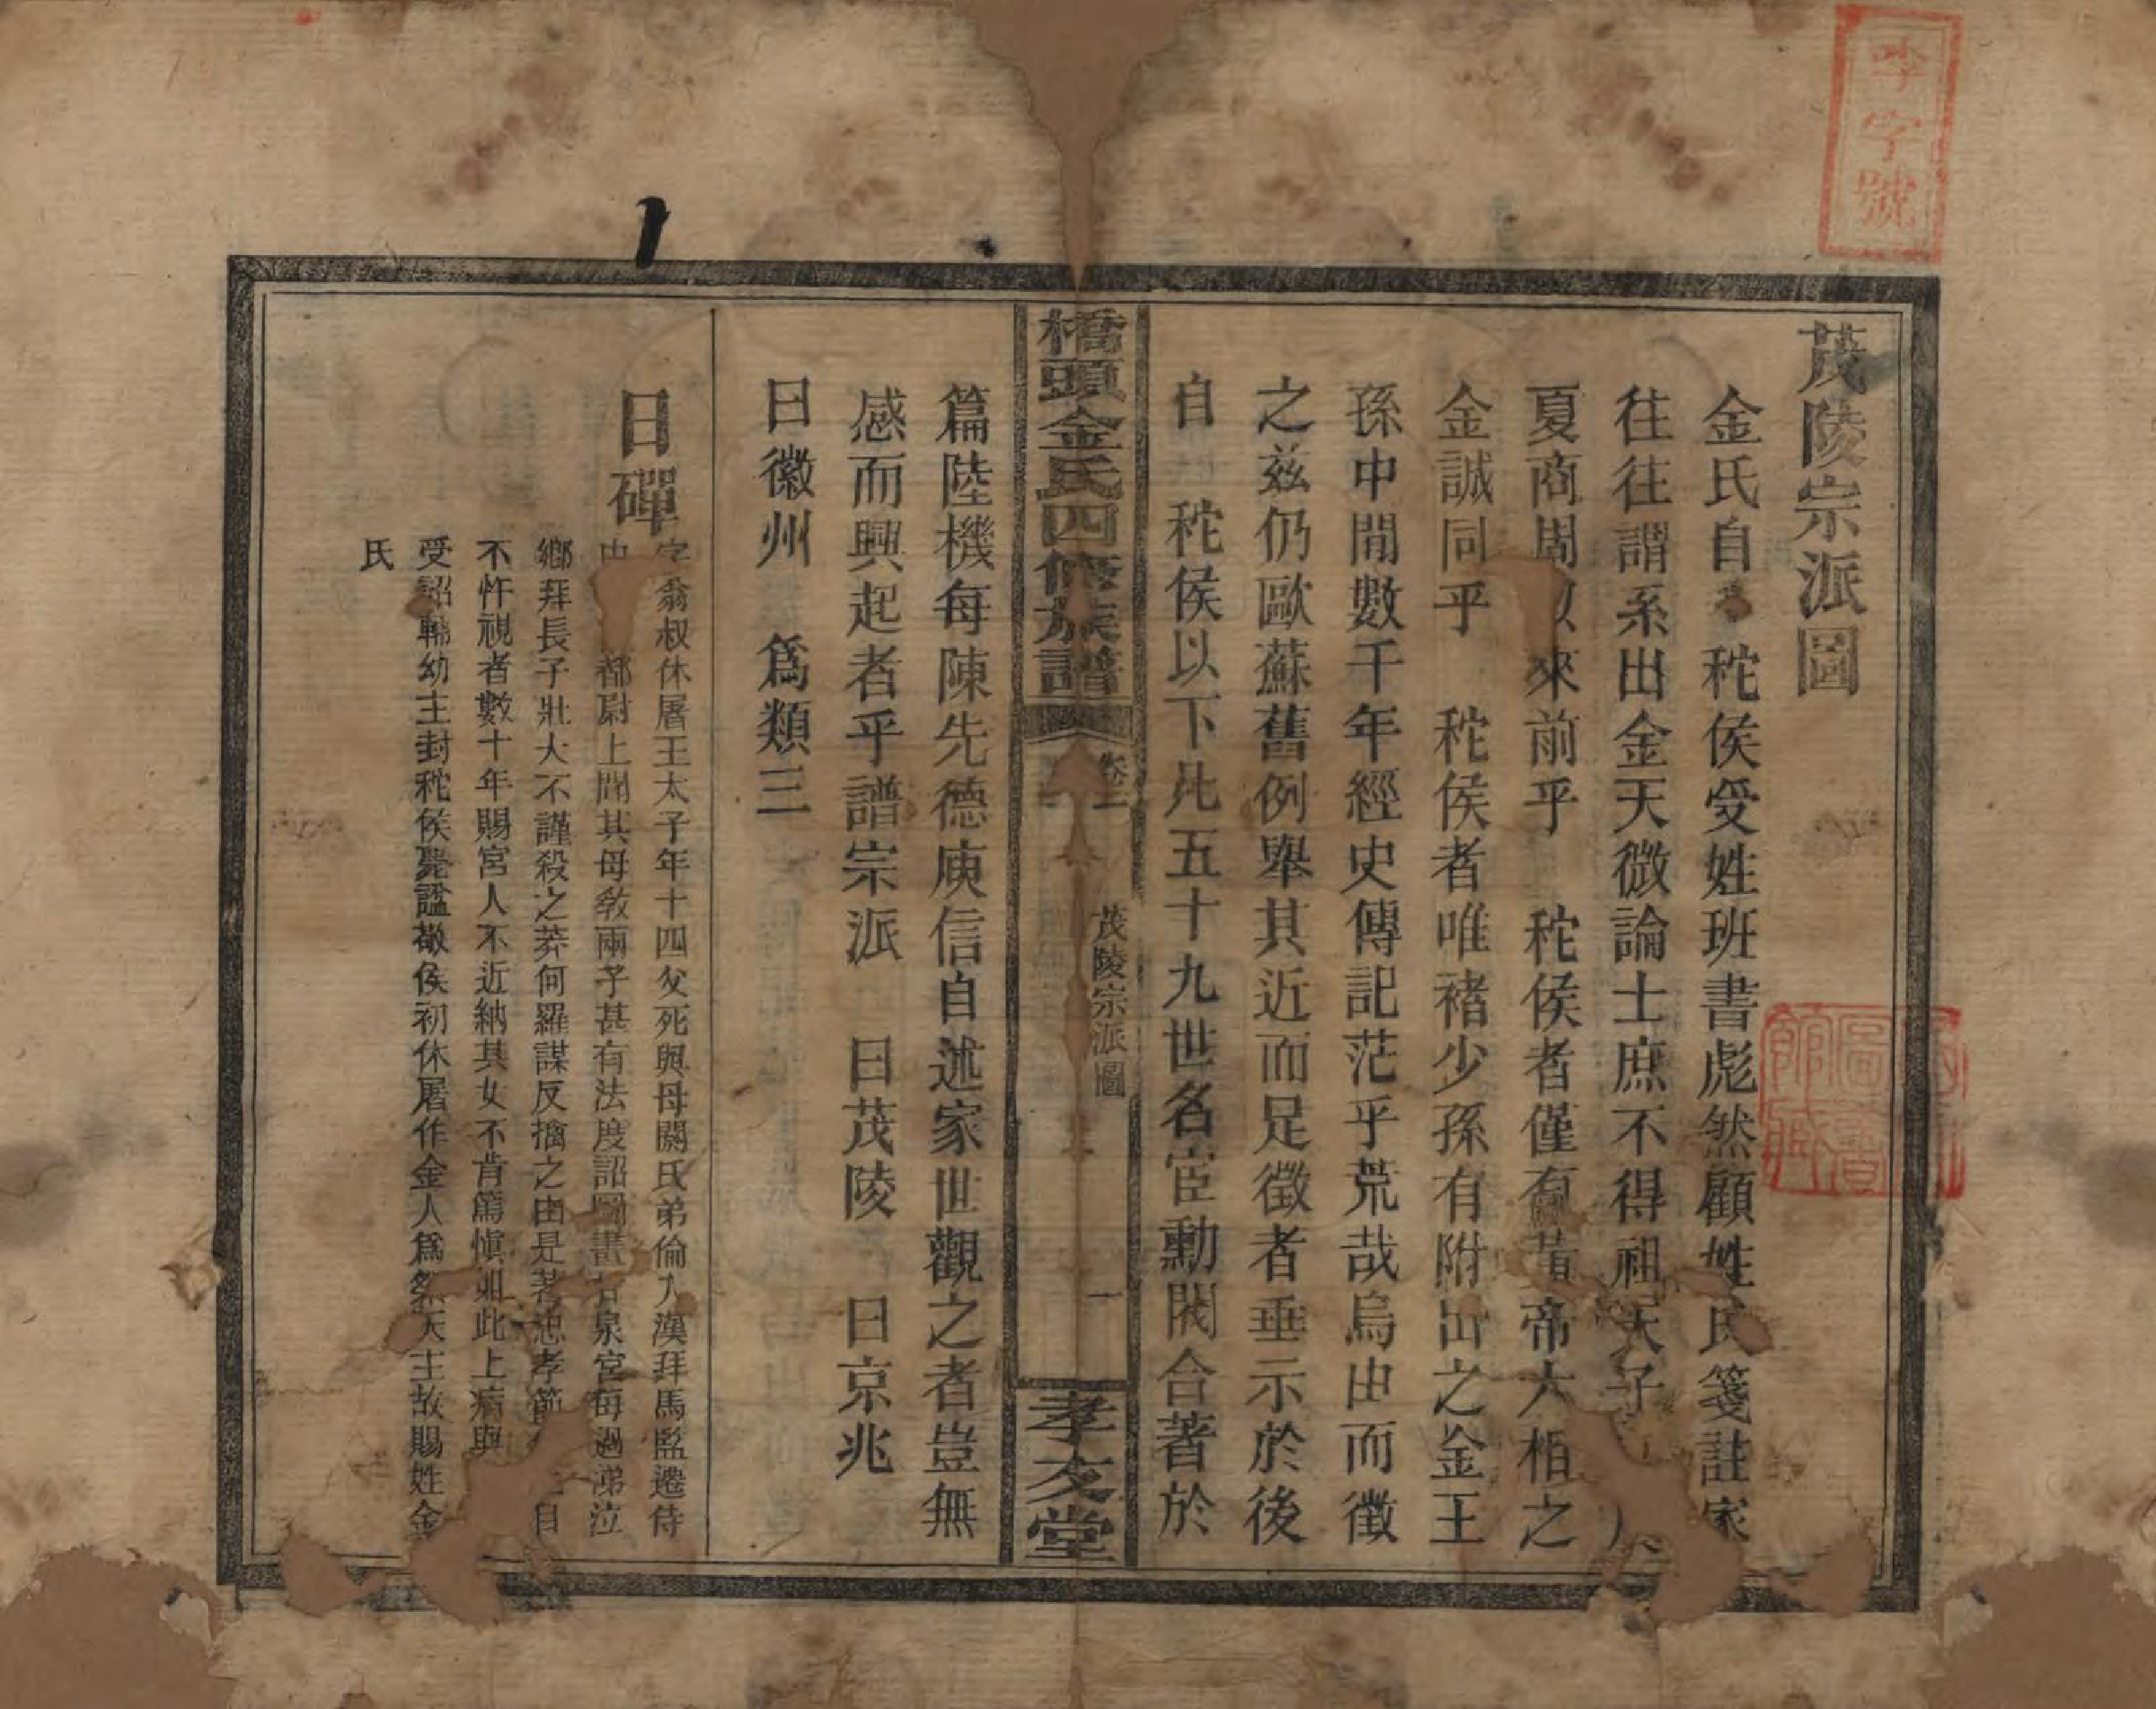 茂陵宗派圖
金氏自 秺侯受姓班書彪然顧姓氏箋註家
往往謂系出金天微論士庶不得祖天子
夏商周以來前乎 秺侯者僅有 昔帝六相之
金誠同乎 秺侯者唯褚少孫有附出之金王
孫中間數千年經史傳記茫乎荒哉烏由而徵
之茲仍歐蘇舊例舉其近而足徵者垂示於後
自 秺侯以下凡五十九世名宦勳閥合著於
橋頭金氏四修族譜 卷一 茂陵宗派圖 一 孝友堂
篇陸機每陳先德庾信自述家世觀之者豈無
感而興起者乎譜宗派 曰茂陵 曰京兆
曰徽州 為類三
日磾
字翁叔休屠王太子年十四父死與母閼氏弟倫入漢拜馬監遷侍
中 都尉上聞其母教兩子甚有法度詔圖畫甘泉宮每過涕泣
鄉拜長子壯大不謹殺之莽何羅謀反擒之由是著忠孝節 自
不忤視者數十年賜宮人不近納其女不肯篤愼如此上病與
受詔輔幼主封秺侯薨諡敬侯初休屠作金人為祭天主故賜姓金
氏
李字號